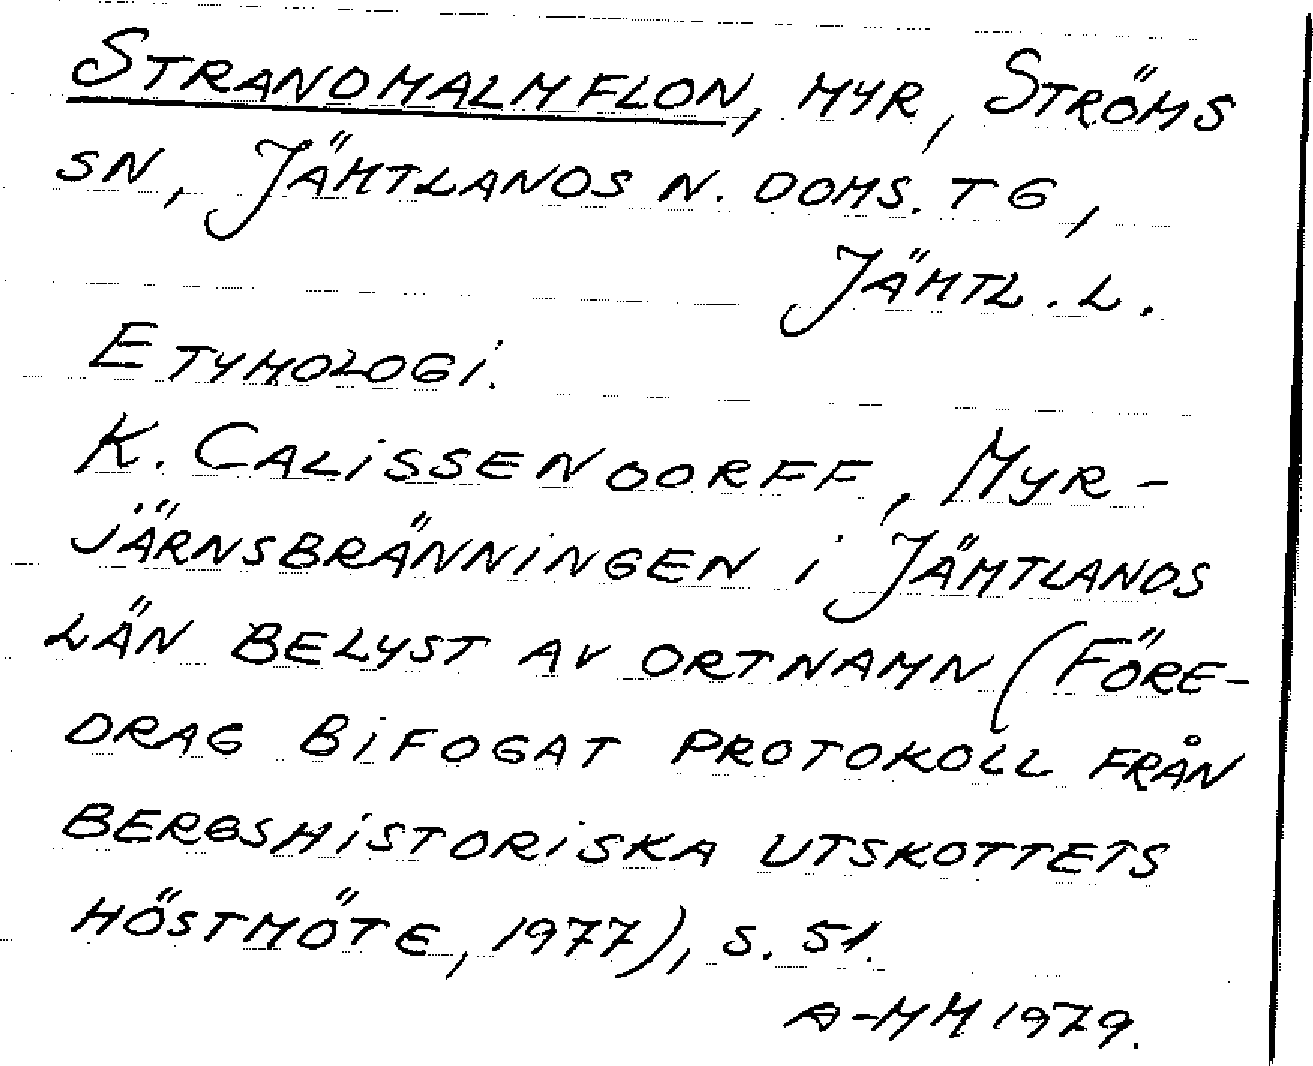 STRANDMALMFLON, MYR, STRÖMS
SN, JÄMTLANDS N. DOMS. TG,
JÄMTL. L.
ETYMOLOGI.
K. CALISSENDORFF, MYR-
JÄRNSBRÄNNINGEN I JÄMTLANDS
LÄN BELYST AV ORTNAMN (FÖRE-
DRAG BIFOGAT PROTOKOLL FRÅN
BERGSHISTORISKA UTSKOTTETS
HÖSTMÖTE, 1977), S. 51.
A-MM 1979.